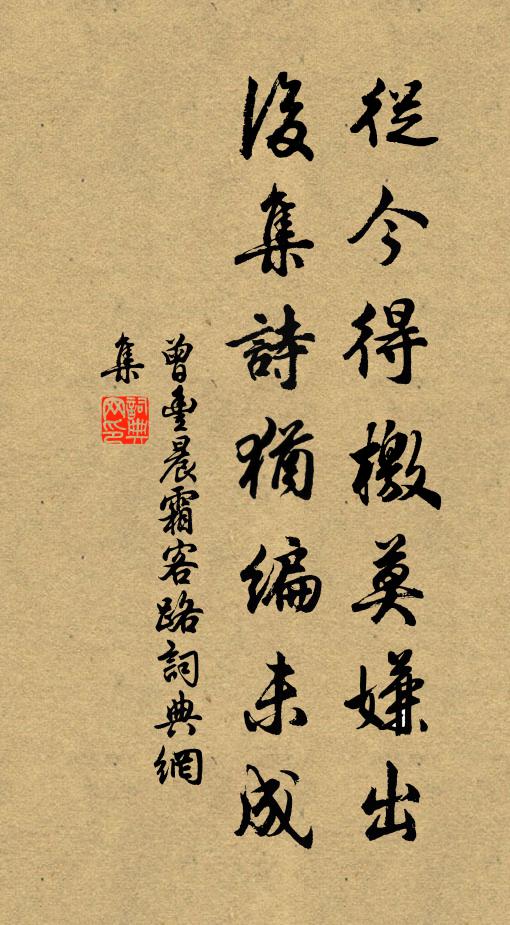 從今得檄莫嫌出
後集詩猶編未成
曾豐晨霜客路詞典網
集
詞典網印